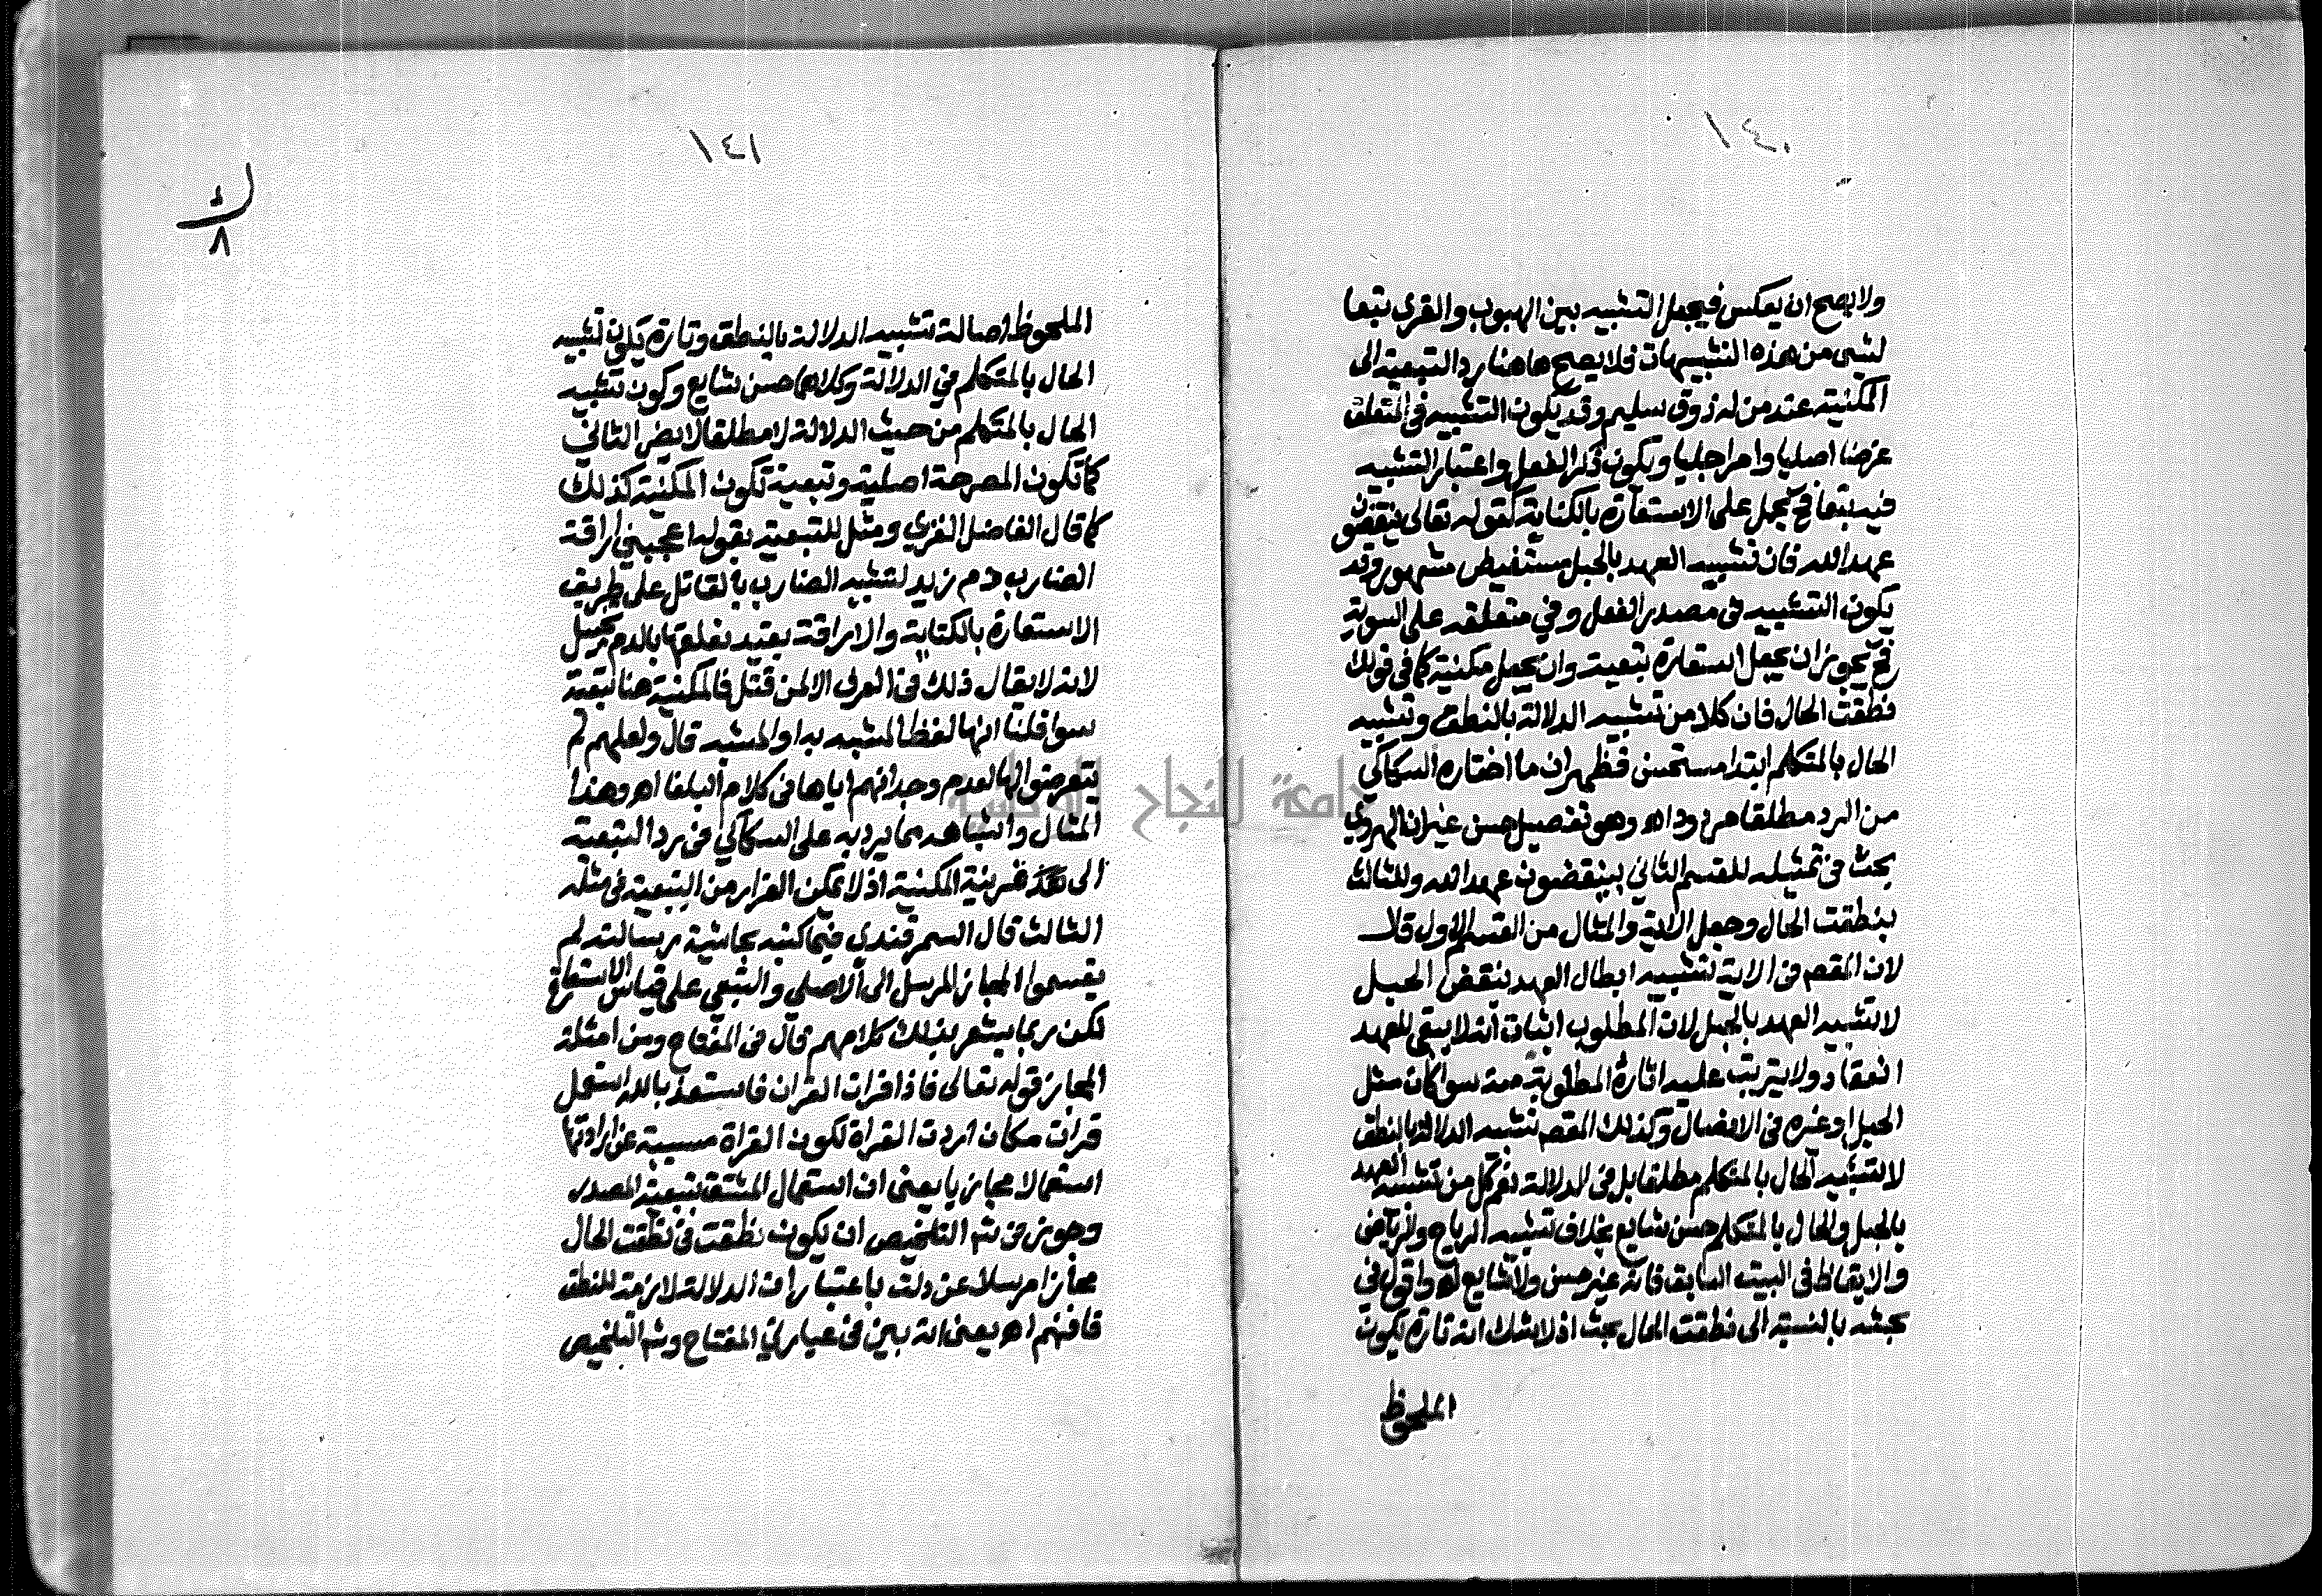 ١٤٠
ولا يصح ان يعكس فيجعل التشبيه بين الهبوب والقرى تبعا
لشى من هذه التشبيهات فلا يصح هاهنا رد التبعية الى
المكنية عند من له ذوق سليم وقد يكون التشبيه فى المتعلق
غرضا اصليا وامرا جليا ويكون ذكر الفعل واعتبار التشبيه
فيه تبعا فح يحمل على الاستعارة بالكناية كقوله تعالى ينقضون
عهد الله فان تشبيه العهد بالحبل مستفيض مشهور وقد
يكون التشبيه فى مصدر الفعل وفي متعلقه على السوية
فح يجوز ان يجعل استعارة تبعية وان يجعل مكنية كما فى قولك
نطقت الحال فان كلا من تشبيه الدلالة بالنطق وتشبيه
الحال بالمتكلم ابتدا مستحسن فظهر ان ما اختاره السكاكي
من الرد مطلقا مردود اه وهو تفصيل حسن غير ان الهروي
بحث فى تمثيله للقسم الثاني بينقضون عهد الله وللثالث
بنطقت الحال وجعل الاية والمثال من القسم الاول قال
لان المقص فى الاية تشبيه ابطال العهد بنقض الحبل
لا تشبيه العهد بالحبل لان المطلوب اثبات انه لا يبقى للعهد
انعقاد ولا يترتب عليه اثاره المطلوبة منه سوا كان مثل
الحبل او غيره فى الاتصال وكذلك المقص تشبيه الدلالة بالنطق
لا تشبيه الحال بالمتكلم مطلقا بل فى الدلالة نعم كل من تشبيه العهد
بالحبل والحال بالمتكلم حسن شايع بخلاف تشبيه الرياح والرياض
والايقاظ فى البيت السابق فانه غير حسن ولا شايع اه واقول فى
بحثه بالنسبة الى نطقت الحال بحث اذ لا شك انه تارة يكون
الملحوظ
١٤١
الملحوظ اصالة تشبيه الدلالة بالنطق وتارة يكون تشبيه
الحال بالمتكلم في الدلالة وكلاهما حسن شايع وكون تشبيه
الحال بالمتكلم من حيث الدلالة لا مطلقا لا يضر الثاني
كما تكون المصرحة اصلية وتبعية تكون المكنية كذلك
كما قال الفاضل الغزي ومثل للتبعية بقوله اعجبني اراقة
الضارب دم زيد لتشبيه الضارب بالقاتل على طريق
الاستعارة بالكناية والاراقة بقيد تعلقها بالدم تخييل
لانه لا يقال ذلك فى العرف الا لمن قتل فالمكنية هنا تبعية
سوا قلنا انها لفظ المشبه به او المشبه قال ولعلهم لم
يتعرضوا لها لعدم وجدانهم اياها فى كلام البلغا اه وهذا
المثال والشاهد مما يرد به على السكاكي فى رد التبعية
الى قرينة المكنية اذ لا يمكن الفرار من التبعية فى مثله
الثالث قال السمرقندي فيما كتبه بحاشية رسالته لم
يقسموا المجاز المرسل الى الاصلي والتبعي على قياس الاستعارة
لكن ربما يشعر بذلك كلامهم قال فى المفتاح ومن امثلة
المجاز قوله تعالى فاذا قرات القران فاستعذ بالله استعمل
قرات مكان اردت القراة لكون القراة مسببة عن ارادتها
استعمالا مجازيا يعنى ان استعمال المشتق بتبعية المصدر
وجوز فى شم التلخيص ان يكون نطقت فى نطقت الحال
مجازا مرسلا عن دلت باعتبار ان الدلالة لازمة للنطق
فافهم اه يعنى انه بين فى عبارتي المفتاح وشم التلخيص
٨
جامعة النجاح الوطنية